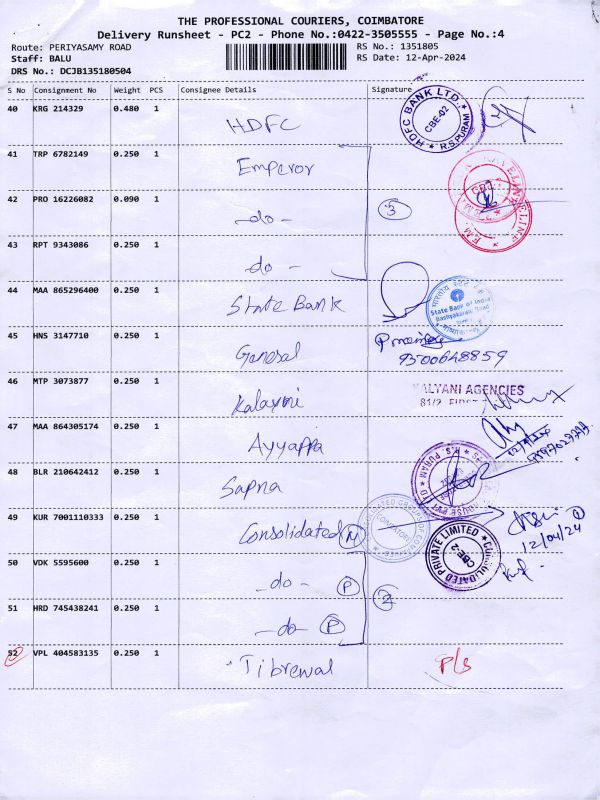 THE PROFESSIONAL COURIERS, COIMBATORE
Delivery Runsheet - PC2 - Phone No.:0422-3505555 - Page No.:4
Route: PERIYASAMY ROAD
RS No.: 1351805
Staff: BALU
RS Date: 12-Apr-2024
DRS No.: DCJB135180504
S No Consignment No Weight PCS Consignee Details Signature
40 KRG 214329 0.480 1 HDFC
HDFC BANK LTD.
CBE-02
R.S.PURAM
41 TRP 6782149 0.250 1 Emperor
42 PRO 16226082 0.090 1 -do-
3
43 RPT 9343086 0.250 1 do -
44 MAA 865296400 0.250 1 State Bank
State Bank of India
45 HNS 3147710 0.250 1 Ganesal
9500648859
46 MTP 3073877 0.250 1 Kalaxmi
KALYANI AGENCIES
47 MAA 864305174 0.250 1 Ayyappa
48 BLR 210642412 0.250 1 Sapna
R.S. PURAM
49 KUR 7001110333 0.250 1 Consolidated N
1
12/04/24
50 VDK 5595600 0.250 1 -do- P
CONSOLIDATED PRIVATE LIMITED
CBE-2
51 HRD 745438241 0.250 1 -do- P
2
52 VPL 404583135 0.250 1 Tibrewal
P/s